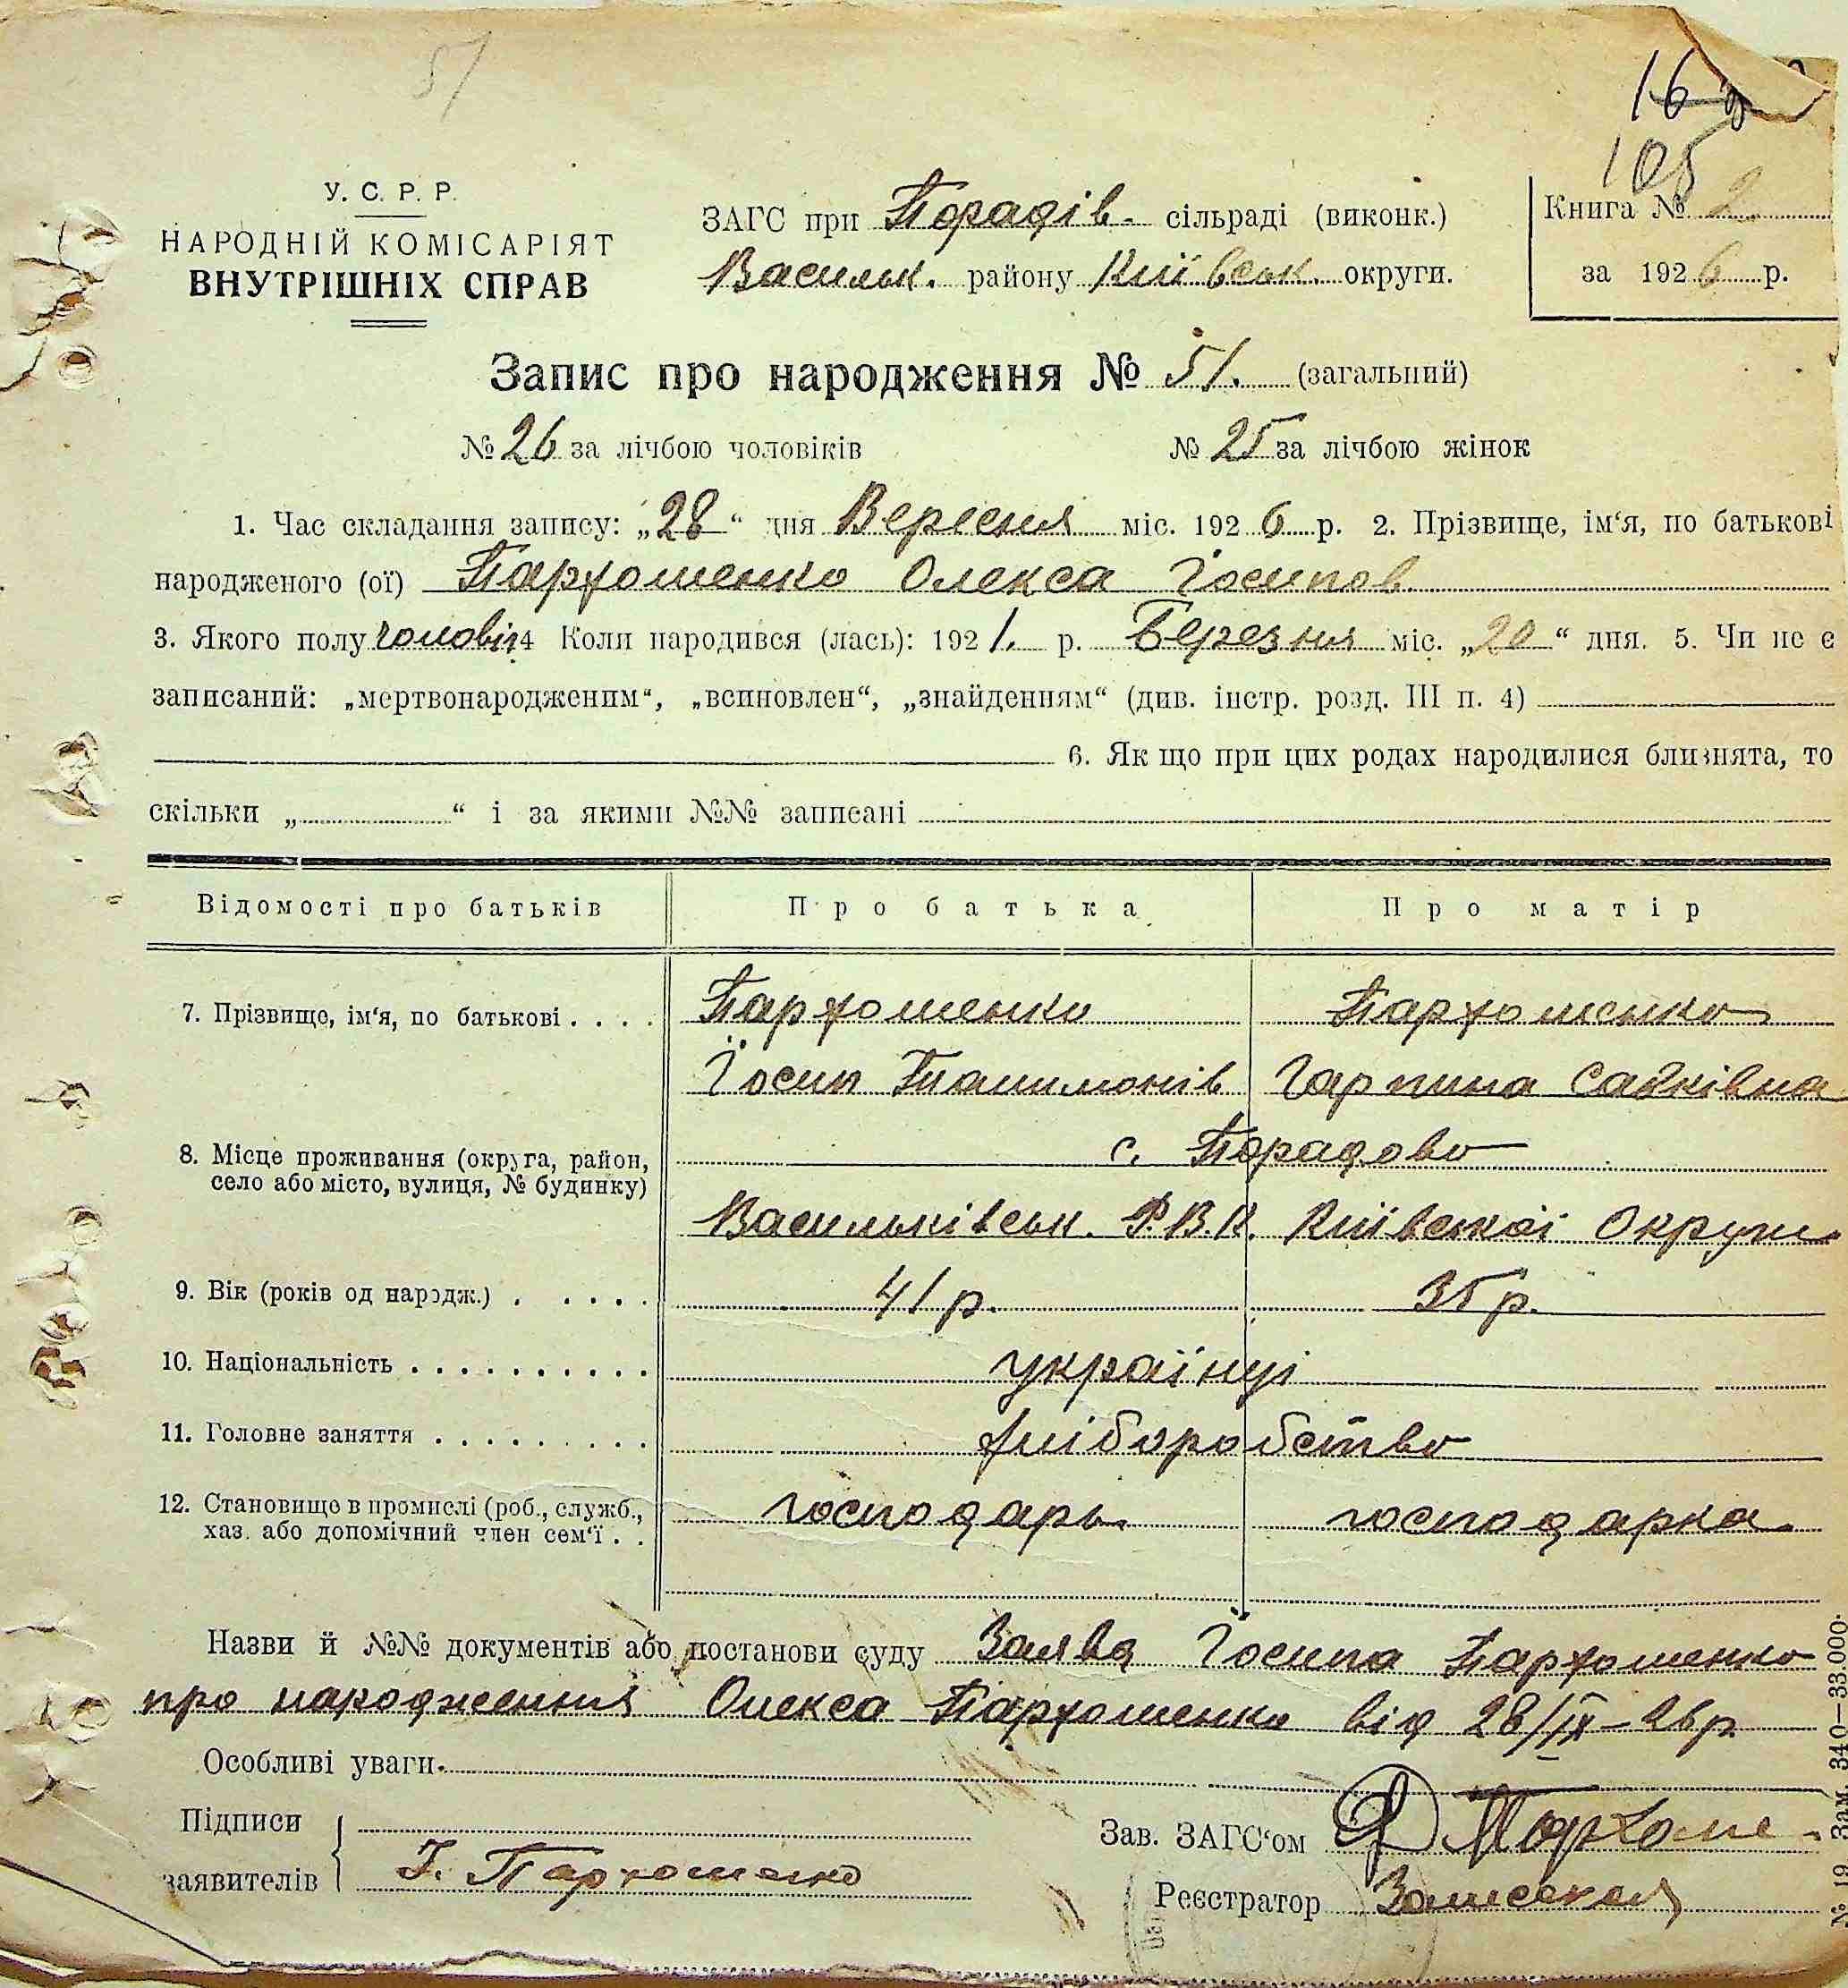 51
16
105
У. С. Р. Р.
НАРОДНІЙ КОМІСАРІЯТ
ВНУТРІШНІХ СПРАВ
ЗАГС при Порадів. сільраді (виконк.)
Васильк. району Київськ. округи.
Книга № 2.
за 1926 р.
Запис про народження № 51. (загальний)
№ 26 за лічбою чоловіків № 25 за лічбою жінок
1. Час складання запису: „28“ дня Вересня міс. 1926 р. 2. Прізвище, ім‘я, по батькові
народженого (ої) Пархоменко Олекса Йосипов.
3. Якого полу чоловіч 4 Коли народився (лась): 1921. р. Березня міс. „20“ дня. 5. Чи не є
записаний: „мертвонародженим“, „всиновлен“, „знайденням“ (див. інстр. розд. III п. 4)
6. Як що при цих родах народилися близнята, то
скільки „ “ і за якими №№ записані
Відомості про батьків Про батька Про матір
7. Прізвище, ім‘я, по батькові . . . . Пархоменко Пархоменко
Йосип Танимонів Гарпина Савківна
8. Місце проживання (округа, район, с. Порадово
село або місто, вулиця, № будинку)
Васильківськ. Р.В.К. Київської Округи.
9. Вік (років од народж.) . . . . . 41 р. 35 р.
10. Національність . . . . . . . . . . українці
11. Головне заняття . . . . . . . . . хліборобство
12. Становище в промислі (роб., служб., господарь. господарка.
хаз. або допомічний член сем‘ї . .
Назви й №№ документів або постанови суду Заява Йосипа Пархоменко
про народження Олекса Пархоменко від 28/IX–26р
Особливі уваги.
Підписи
заявителів Й. Пархоменко
Зав. ЗАГС‘ом Пархоме
Реєстратор
№ 19 Зам. 340—33.000.